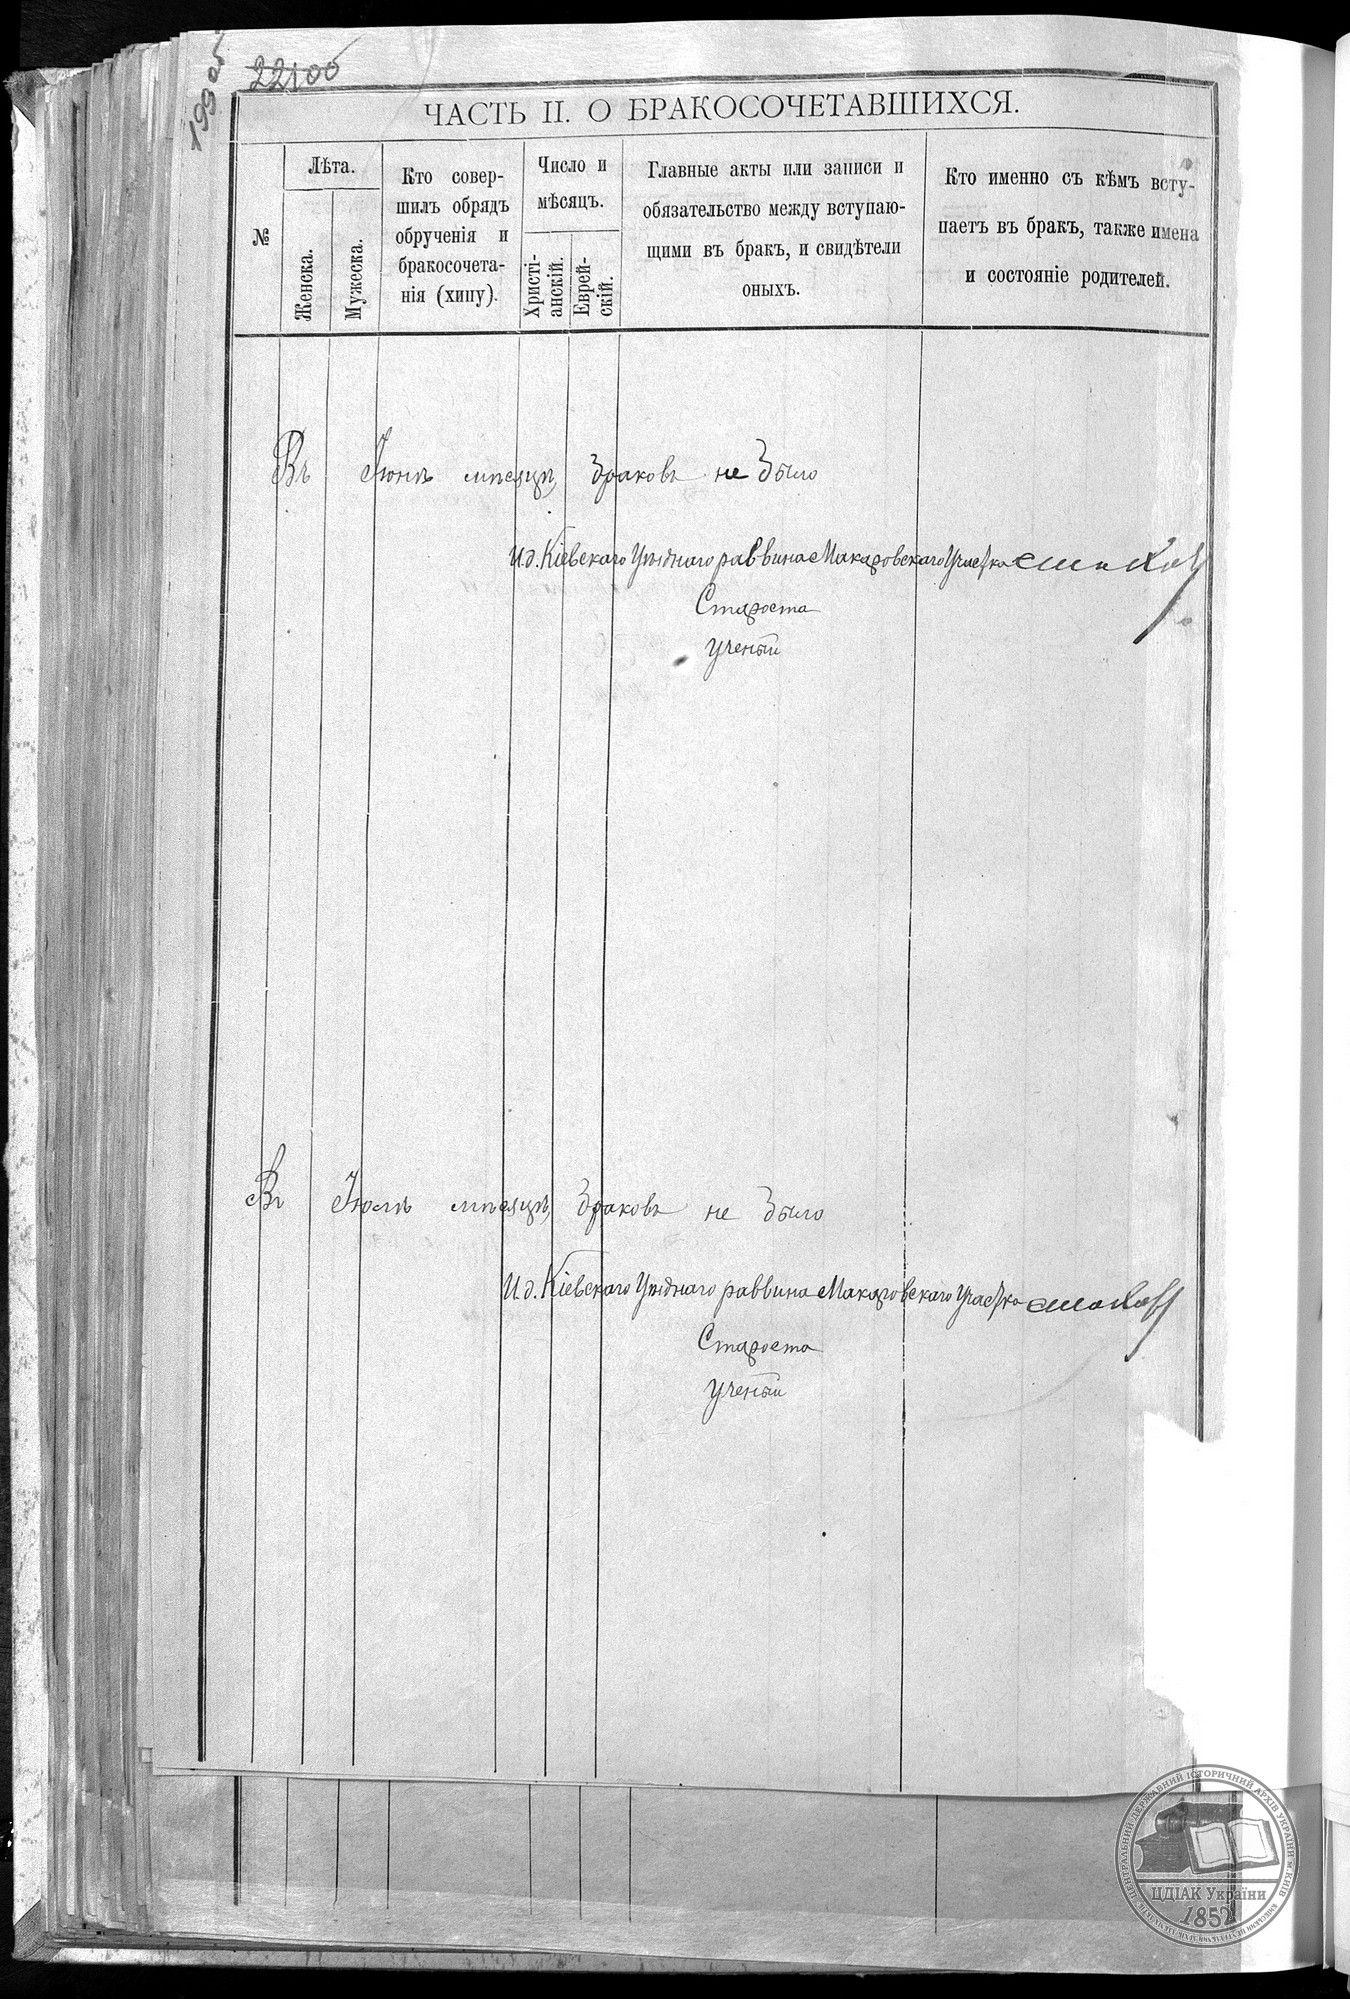 199 об
22 об
ЧАСТЬ II. О БРАКОСОЧЕТАВШИХСЯ.
№
Лѣта.
Женска.
Мужеска.
Кто совер-
шилъ обрядъ
обрученія и
бракосочета-
нія (хипу).
Число и
мѣсяцъ.
Христі-
анскій.
Еврей-
скій.
Главные акты или записи и
обязательство между вступаю-
щими въ бракъ, и свидѣтели
оныхъ.
Кто именно съ кѣмъ всту-
паетъ въ бракъ, также имена
и состояніе родителей.
Въ Іюнѣ мѣсяцѣ браковъ не было
И.д. Кіевскаго Уѣзднаго раввина Макаровскаго Участка
Староста
Ученый
Въ Іюлѣ мѣсяцѣ браковъ не было
И.д. Кіевскаго Уѣзднаго раввина Макаровскаго Участка
Староста
Ученый
ЦЕНТРАЛЬНИЙ ДЕРЖАВНИЙ ІСТОРИЧНИЙ АРХІВ УКРАЇНИ М.КИЇВ
ЦДІАК України
1852